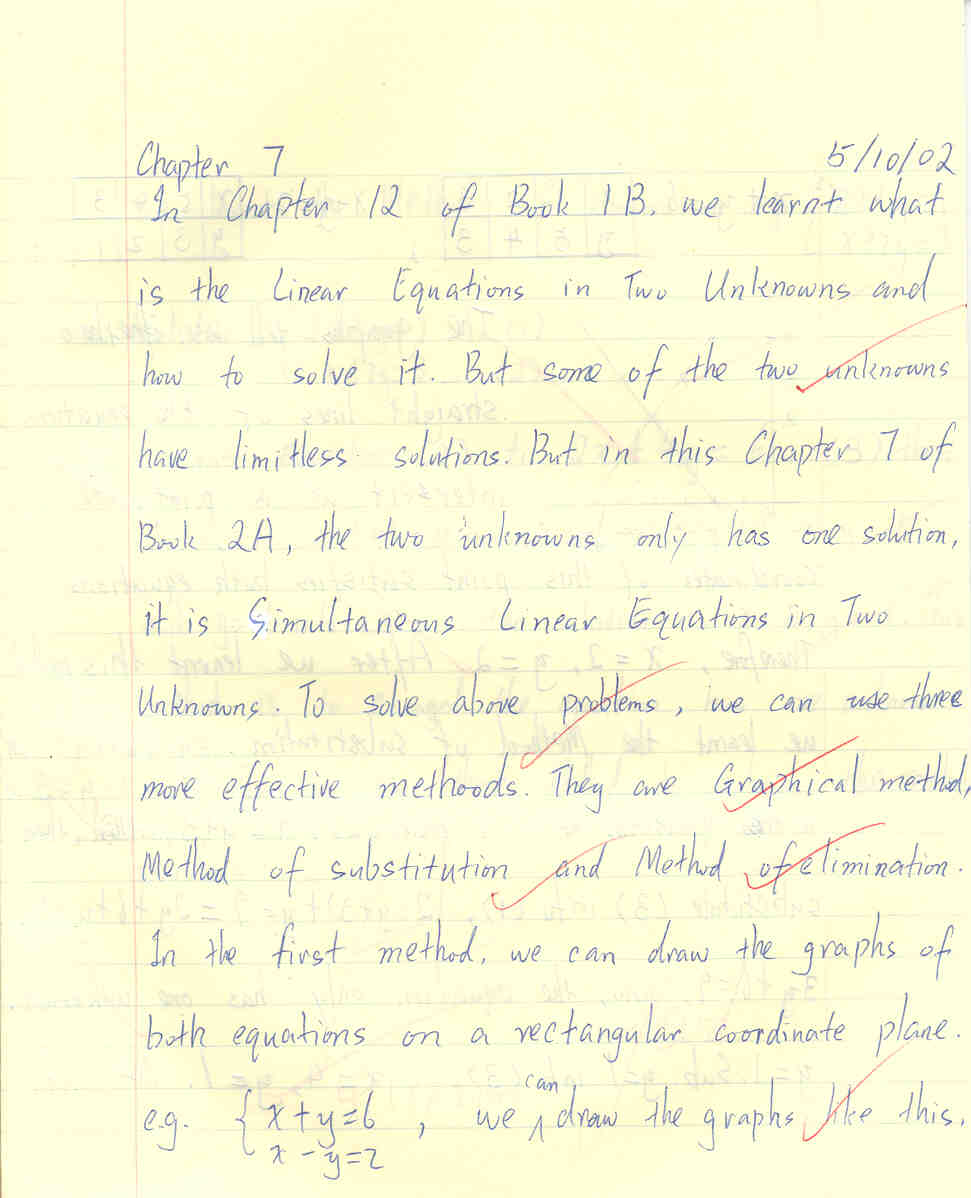 Chapter 7 5/10/02
In Chapter 12 of Book 1B, we learnt what
is the Linear Equations in Two Unknowns and
how to solve it. But some of the two unknowns
have limitless solutions. But in this Chapter 7 of
Book 2A, the two unknowns only has one solution,
it is Simultaneous Linear Equations in Two
Unknowns. To solve above problems, we can use three
more effective methoods. They are Graphical method,
Method of substitution and Method of elimination.
In the first method, we can draw the graphs of
both equations on a rectangular coordinate plane.
e.g. { x+y=6 , we can draw the graphs like this.
x-y=2